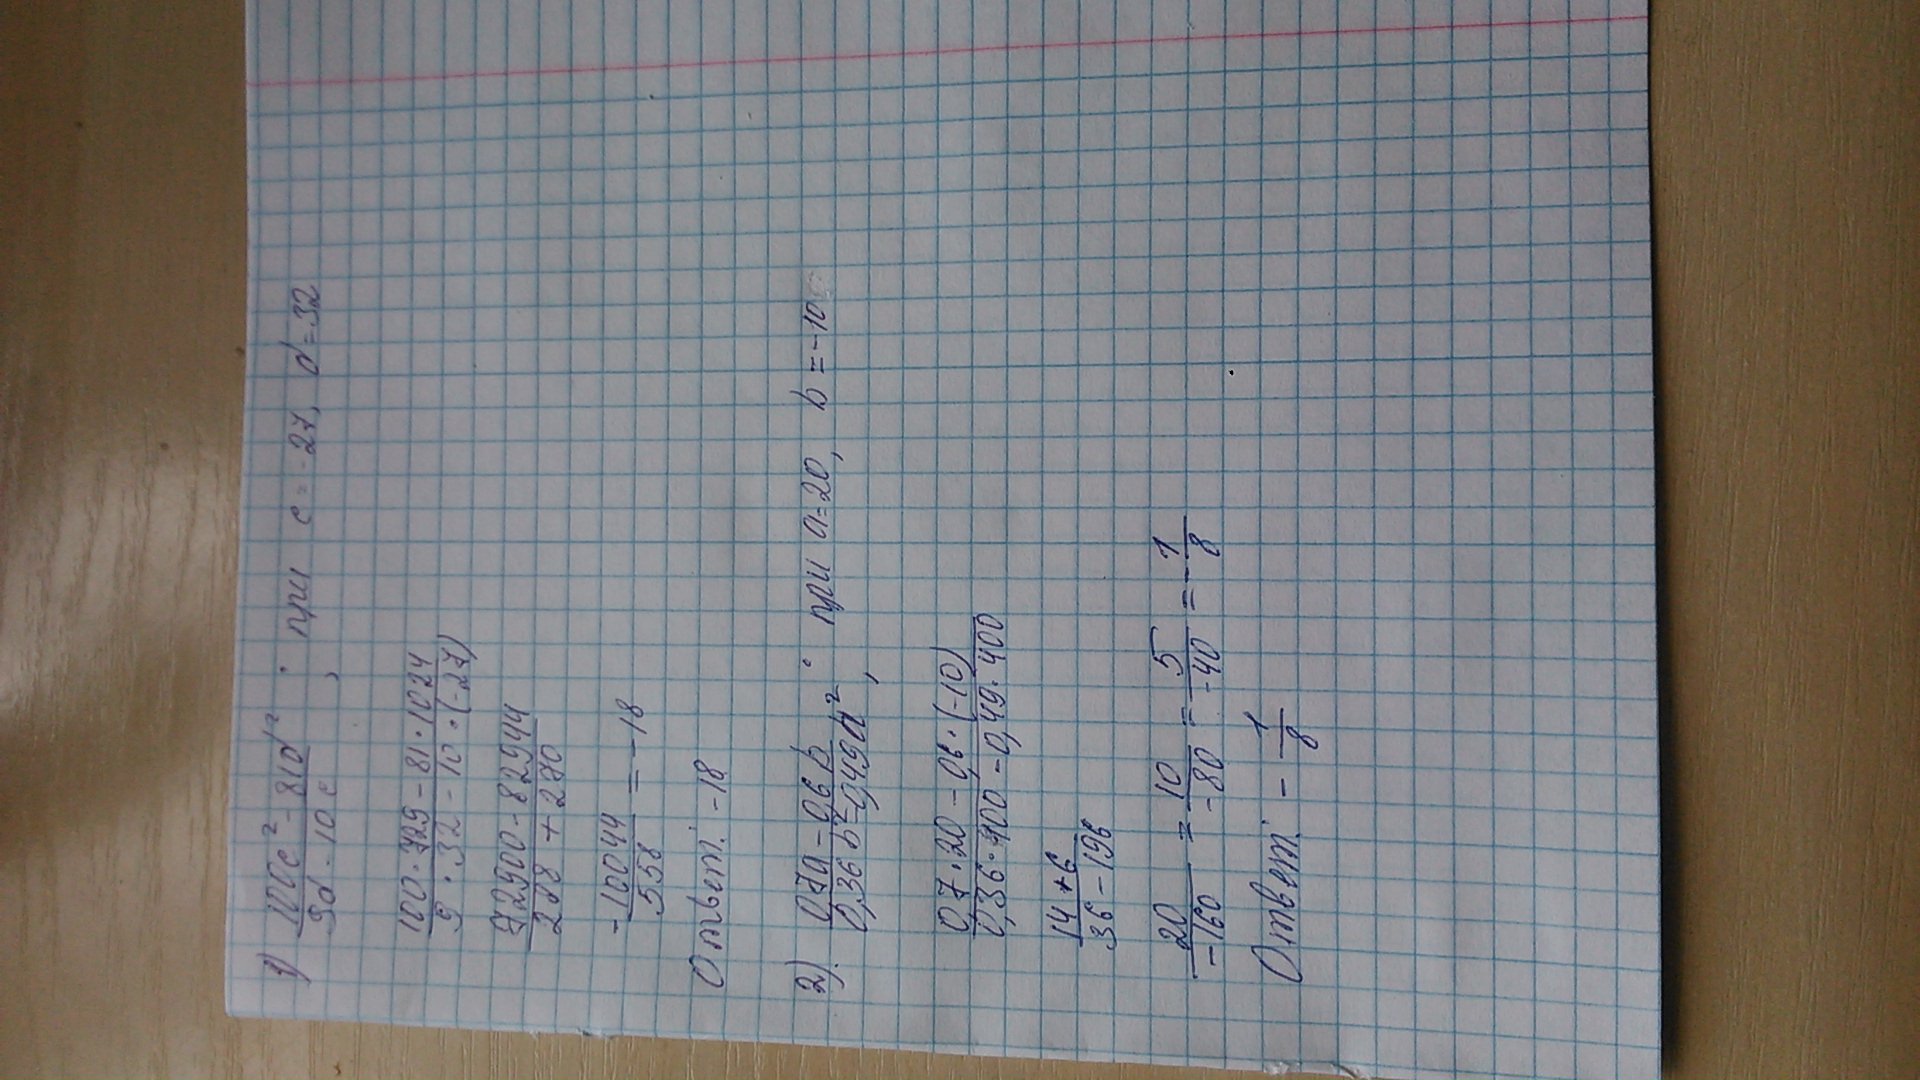 1) (100c² - 81d²)/(9d - 10c), при c = -27, d = 32
(100·729 - 81·1024)/(9·32 - 10·(-27))
(72900 - 82944)/(288 + 270)
-10044/558 = -18
Ответ: -18
2). (0,7a - 0,6b)/(0,36b² - 0,49a²), при a = 20, b = -10
(0,7·20 - 0,6·(-10))/(0,36·100 - 0,49·400)
(14 + 6)/(36 - 196)
20/-160 = 10/-80 = 5/-40 = -1/8
Ответ: -1/8